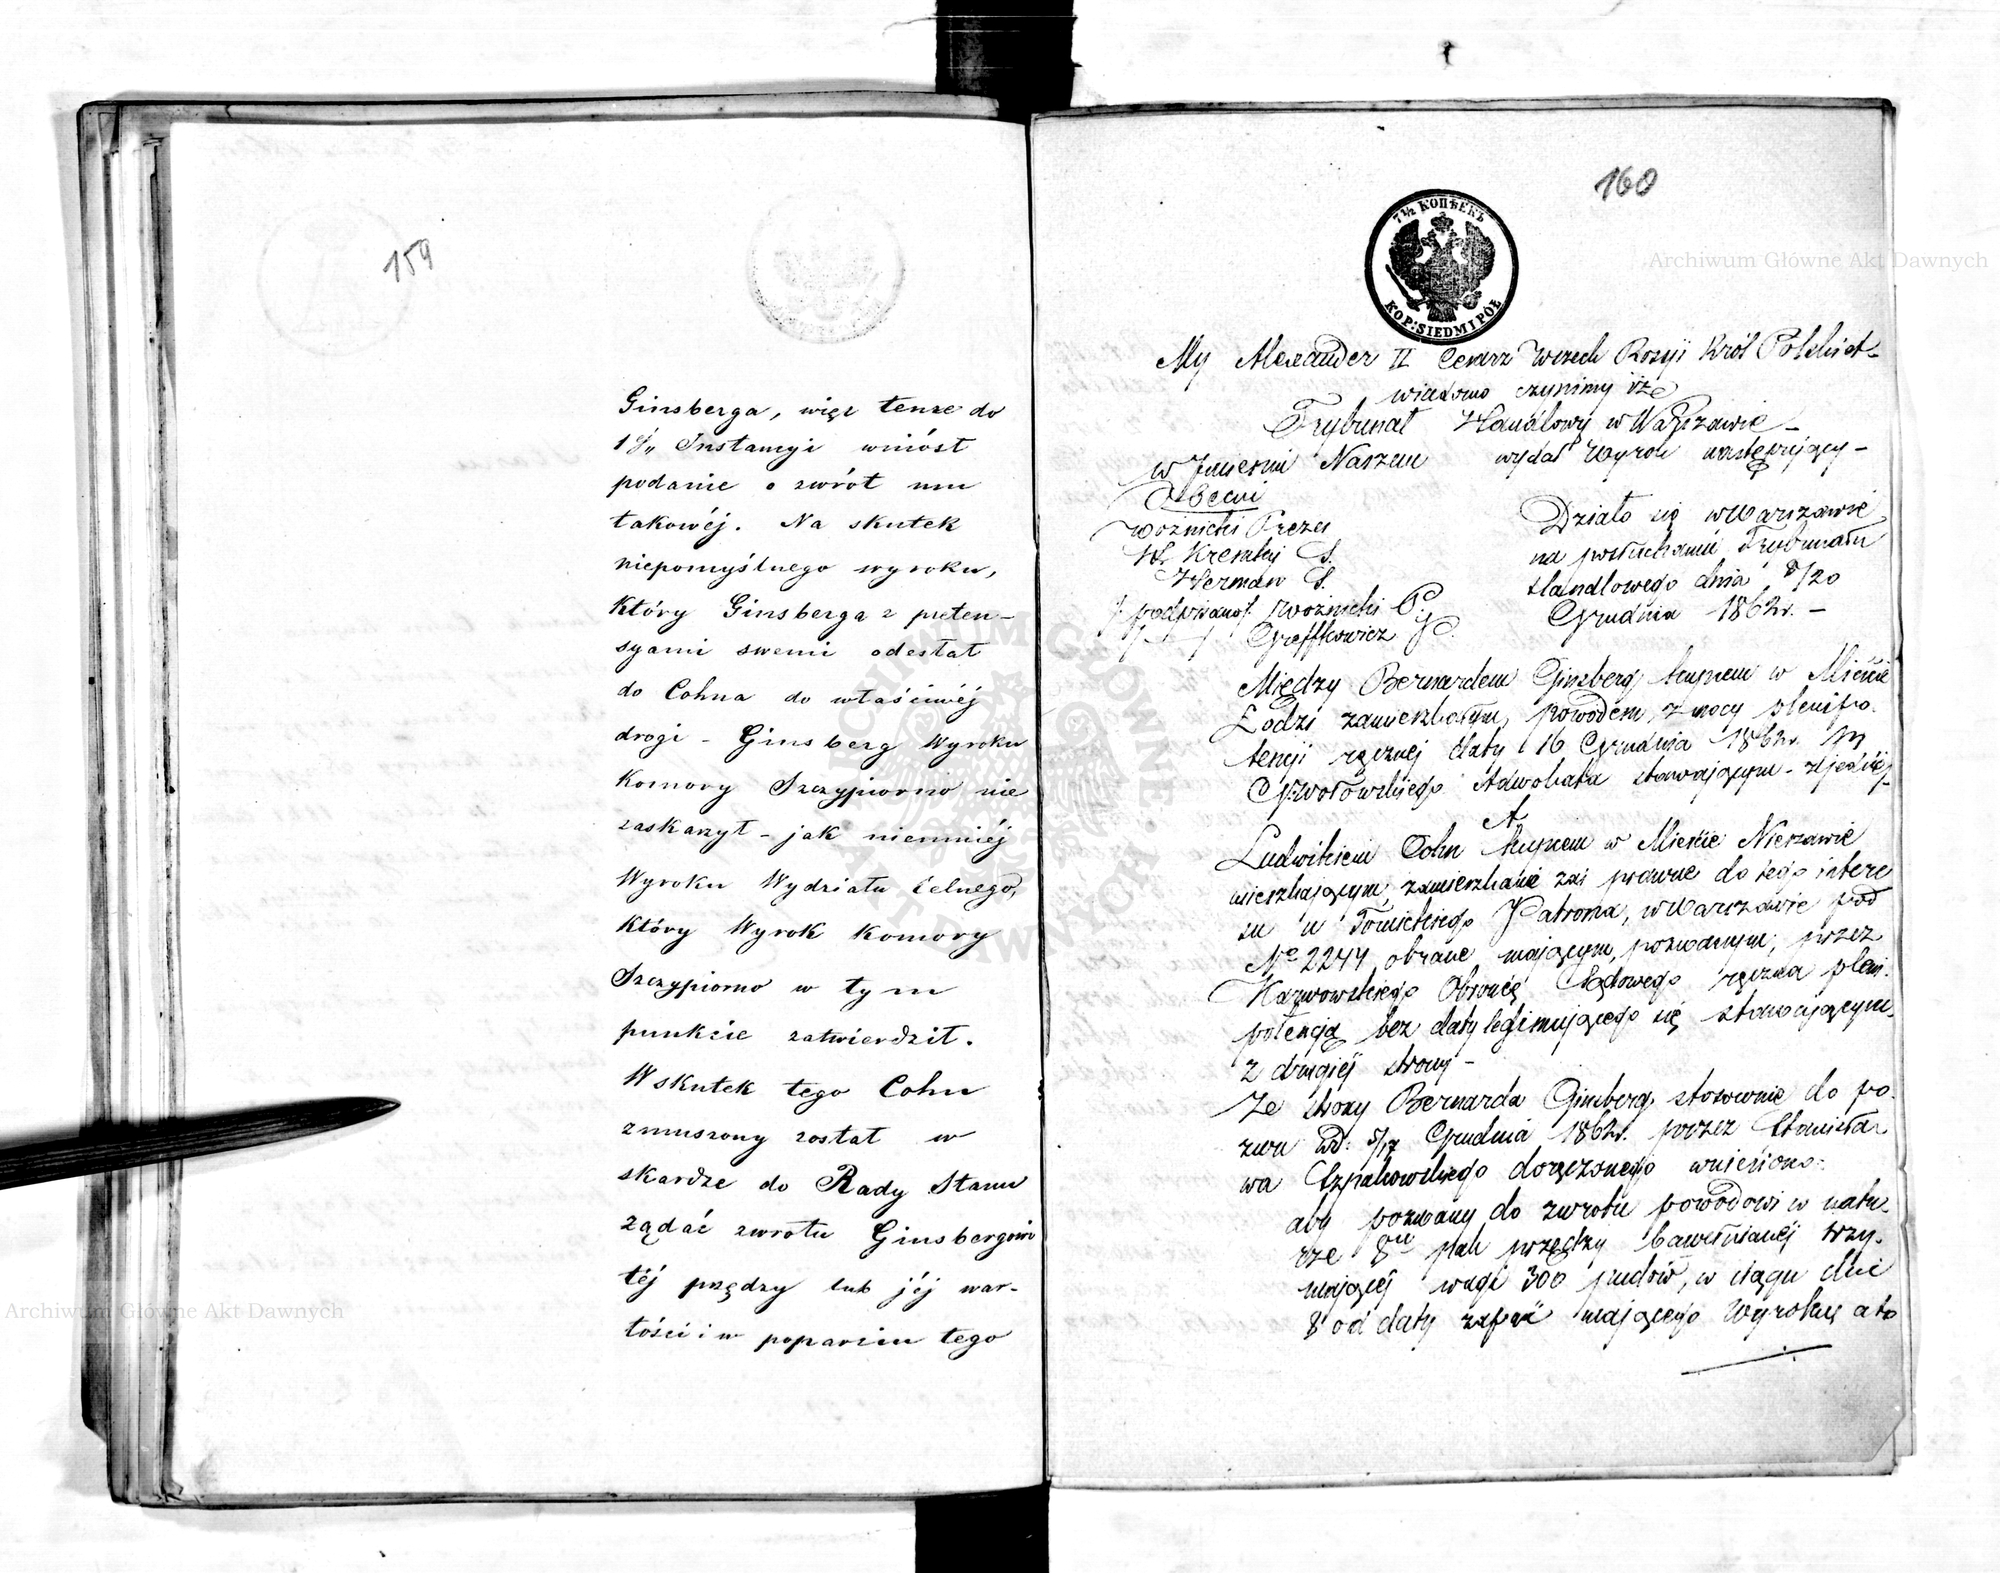 159
Ginsberga, więc tenże do
1éj Instancyi wniósł
podanie o zwrot mu
takowéj. Na skutek
niepomyślnego wyroku,
który Ginsberga z preten-
syami swemi odesłał
do Cohna do właściwéj
drogi - Ginsberg Wyroku
Komory Szczypiorno nie
zaskarżył - jak niemniéj
Wyroku Wydziału Celnego,
który Wyrok Komory
Szczypiorno w tym
punkcie zatwierdził.
W skutek tego Cohn
zmuszony został w
skardze do Rady Stanu
żądać zwrotu Ginsbergowi
téj przędzy lub jéj war-
tości i w poparciu tego
160
7½ КОПѢЕКЪ
KOP: SIEDM I PÓŁ
My Alexander II Cesarz Wszech Rosyi Król Polski et-
wiadomo czynimy iże
Trybunał Handlowy w Warszawie -
w Imieniu Naszem wydał Wyrok następujący -
Obecni
Woźnicki Prezes
Herman S.
/podpisano/. Woźnicki P.
Greffkowicz P.
Działo się w Warszawie
na posłuchaniu Trybunału
Handlowego dnia 8/20
Grudnia 1862r. -
Między Bernardem Ginsberg kupcem w Mieście
Łodzi zamieszkałym, powodem, z mocy plenipo-
tencyi ręcznej daty 16 Grudnia 1862r. przez
Wołowskiego Adwokata stawającym - z jednéj
A
Ludwikiem Cohn kupcem w Mieście Nieszawie
mieszkającym, zamieszkanie zaś prawne do tego intere
su u Tomickiego Patrona, w Warszawie pod
No 2244 obrane mającym, pozwanym, przez
Obrońcę Sądowego ręczną pleni-
potencją bez daty legitimującego się stawającym
z drugiéj strony -
Ze strony Bernarda Ginsberg stosownie do po-
zwu z d. 5/17 Grudnia 1862r. przez Stanisła-
wa Szpakowskiego doręczonego wniesiono:
aby pozwany do zwrotu powodowi w natu-
rze 8iu pak przędzy bawełnianéj trzy-
mającéj wagi 300 pudów, w ciągu dni
8 od daty zapaść mającego Wyroku, a to
Archiwum Główne Akt Dawnych